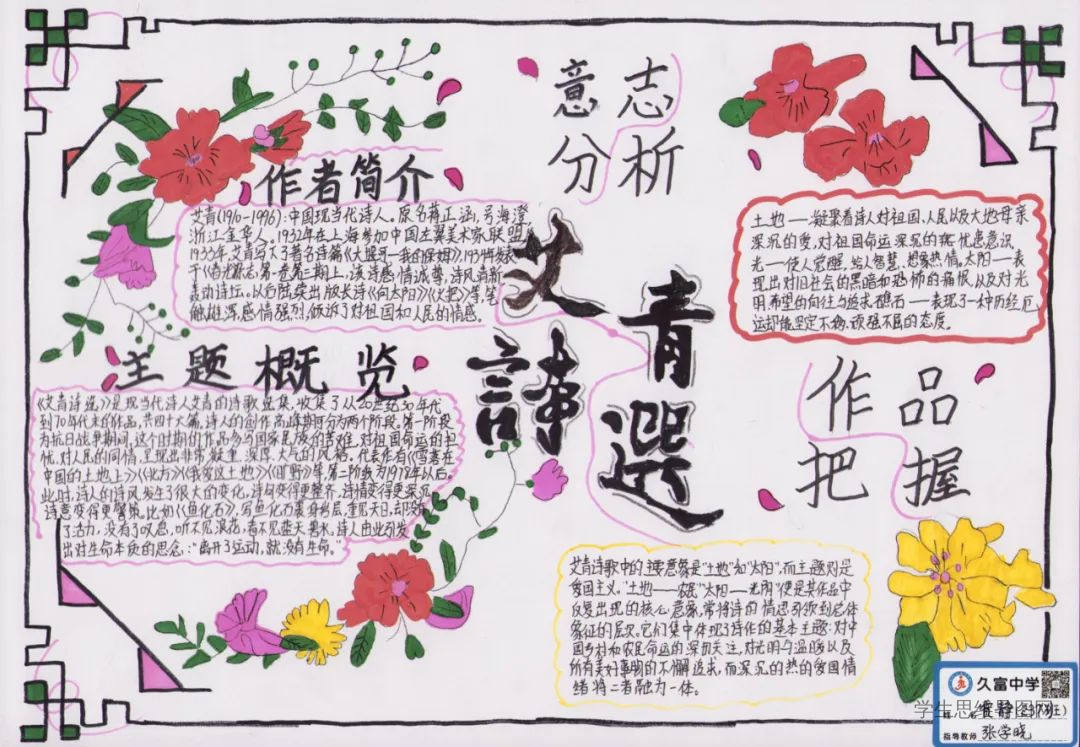 作者简介
艾青(1910-1996):中国现当代诗人。原名蒋正涵,号海澄
浙江金华人。1932年在上海参加中国左翼美术家联盟
1933年,艾青写下了著名诗篇《大堰河—我的保姆》,1934年发表
于《春光》杂志第一卷第三期上,该诗感情诚挚,诗风清新
轰动诗坛。以后陆续出版长诗《向太阳》《火把》等,笔
触雄浑,感情强烈,倾诉了对祖国和人民的情感。
主题概览
《艾青诗选》是现当代诗人艾青的诗歌选集,收集了从20世纪30年代
到70年代末的作品,共四十六篇,诗人的创作高峰期可分为两个阶段。第一阶段
为抗日战争期间,这个时期的作品多写国家民族的苦难,对祖国命运的担
忧,对人民的同情,呈现出非常凝重、深厚、大气的风格。代表作有《雪落在
中国的土地上》《北方》《我爱这土地》《旷野》等,第二阶段为1978年以后。
此时,诗人的诗风发生了很大的变化,诗句变得更整齐,诗情变得更深沉,
诗意变得更警策。比如《鱼化石》,写鱼化石裹身岩层,重见天日,却没有
了活力,没有了叹息,听不见浪花,看不见蓝天碧水,诗人由此引发
出对生命本质的思念:“离开了运动,就没有生命。”
艾青
詩選
意志
分析
土地——凝聚着诗人对祖国、人民以及大地母亲
深沉的爱,对祖国命运深沉的忧患意识
光——使人觉醒,给人智慧、想象热情。太阳——表
现出对旧社会的黑暗和恐怖的痛恨,以及对光
明、希望的向往与追求礁石——表现了一种历经厄
运却能坚定不移、顽强不屈的态度。
作品
把握
艾青诗歌中的主要意象是“土地”和“太阳”,而主题则是
爱国主义。“土地——农民”“太阳——光明”便是其作品中
反复出现的核心意象,常将诗的情思引领到总体
象征的层次。它们集中体现了诗作的基本主题:对中
国乡村和农民命运的深切关注,对光明与温暖以及
所有美好事物的不懈追求,而深沉的热的爱国情
绪将二者融为一体。
久富中学
学生思维导图网
指导教师 张学晓